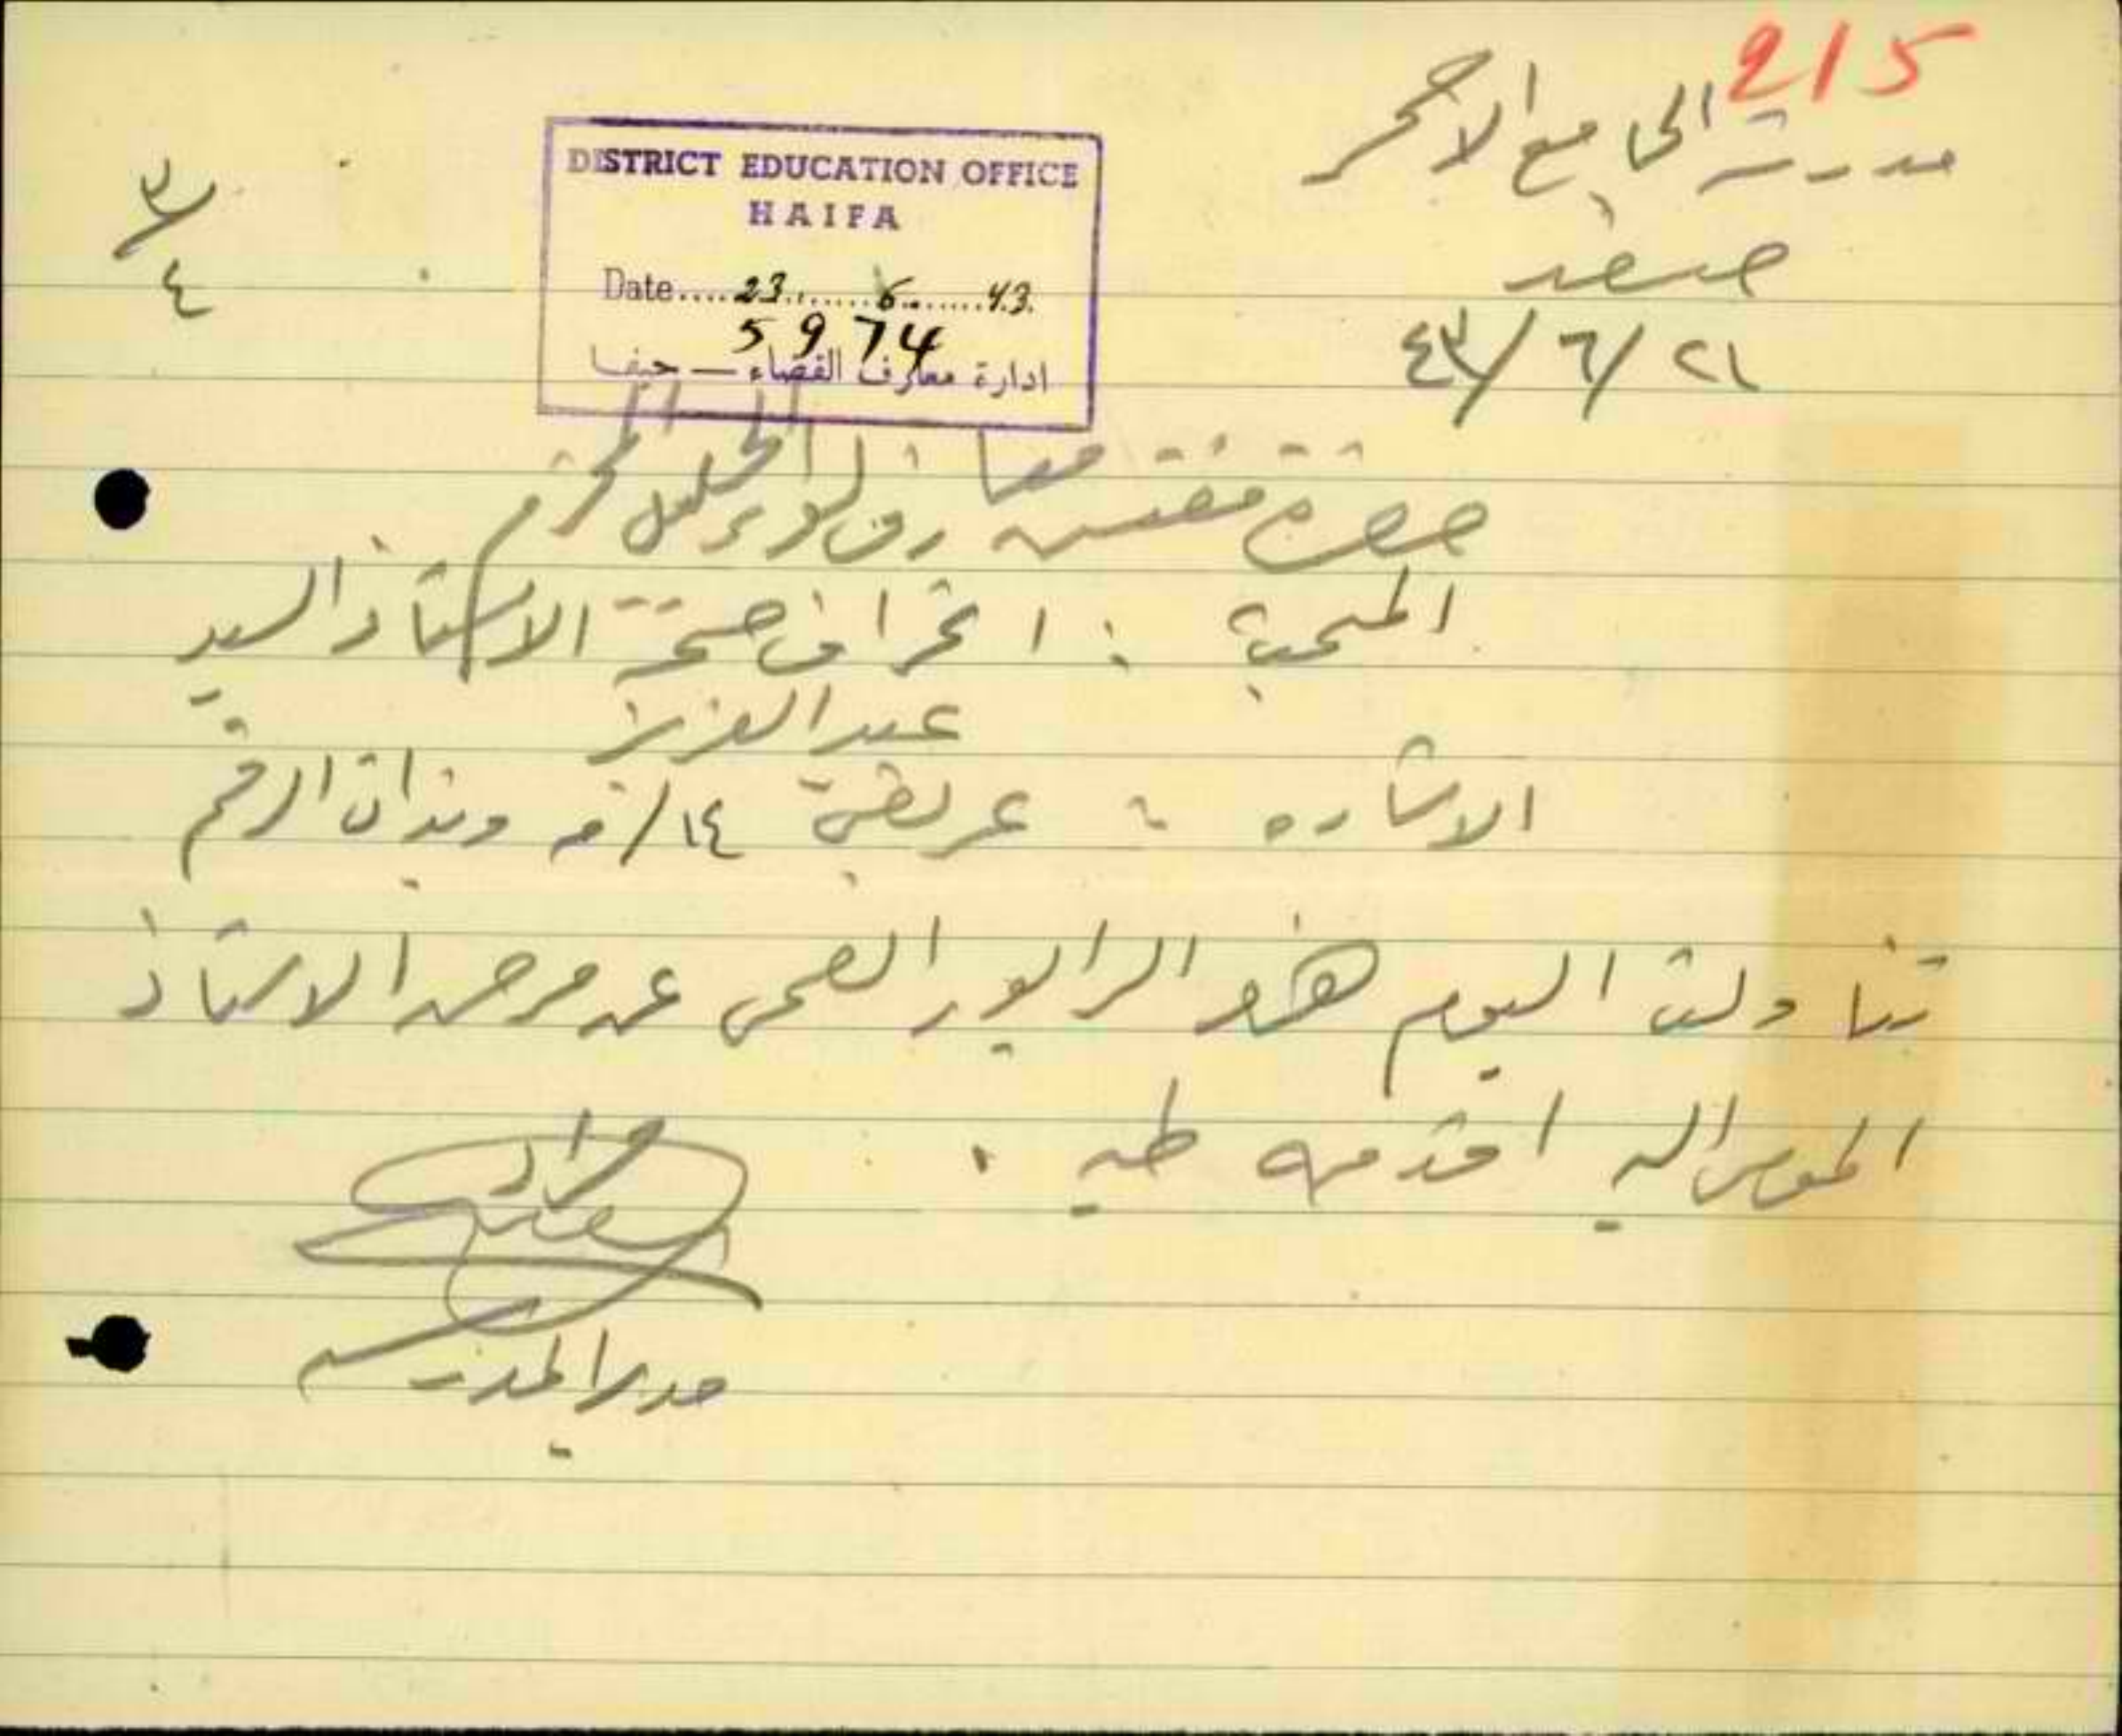 215
مدرسة الجامع الاحمر
صفد
٢١/٦/٤٣
٣/٤
DISTRICT EDUCATION OFFICE
HAIFA
Date....23......6......43.
5974
ادارة معارف القضاء — حيفا
حضرة مفتش معارف لواء الجليل المحترم
المبحث : انحراف صحة الاستاذ السيد
عبد العزيز
الاشاره : عريضتي ١٤/م وبذات الرقم
تناولت اليوم هذا الرابور الصحي عن مرض الاستاذ
المومى اليه اقدمه طيه .
مدير المدرسه